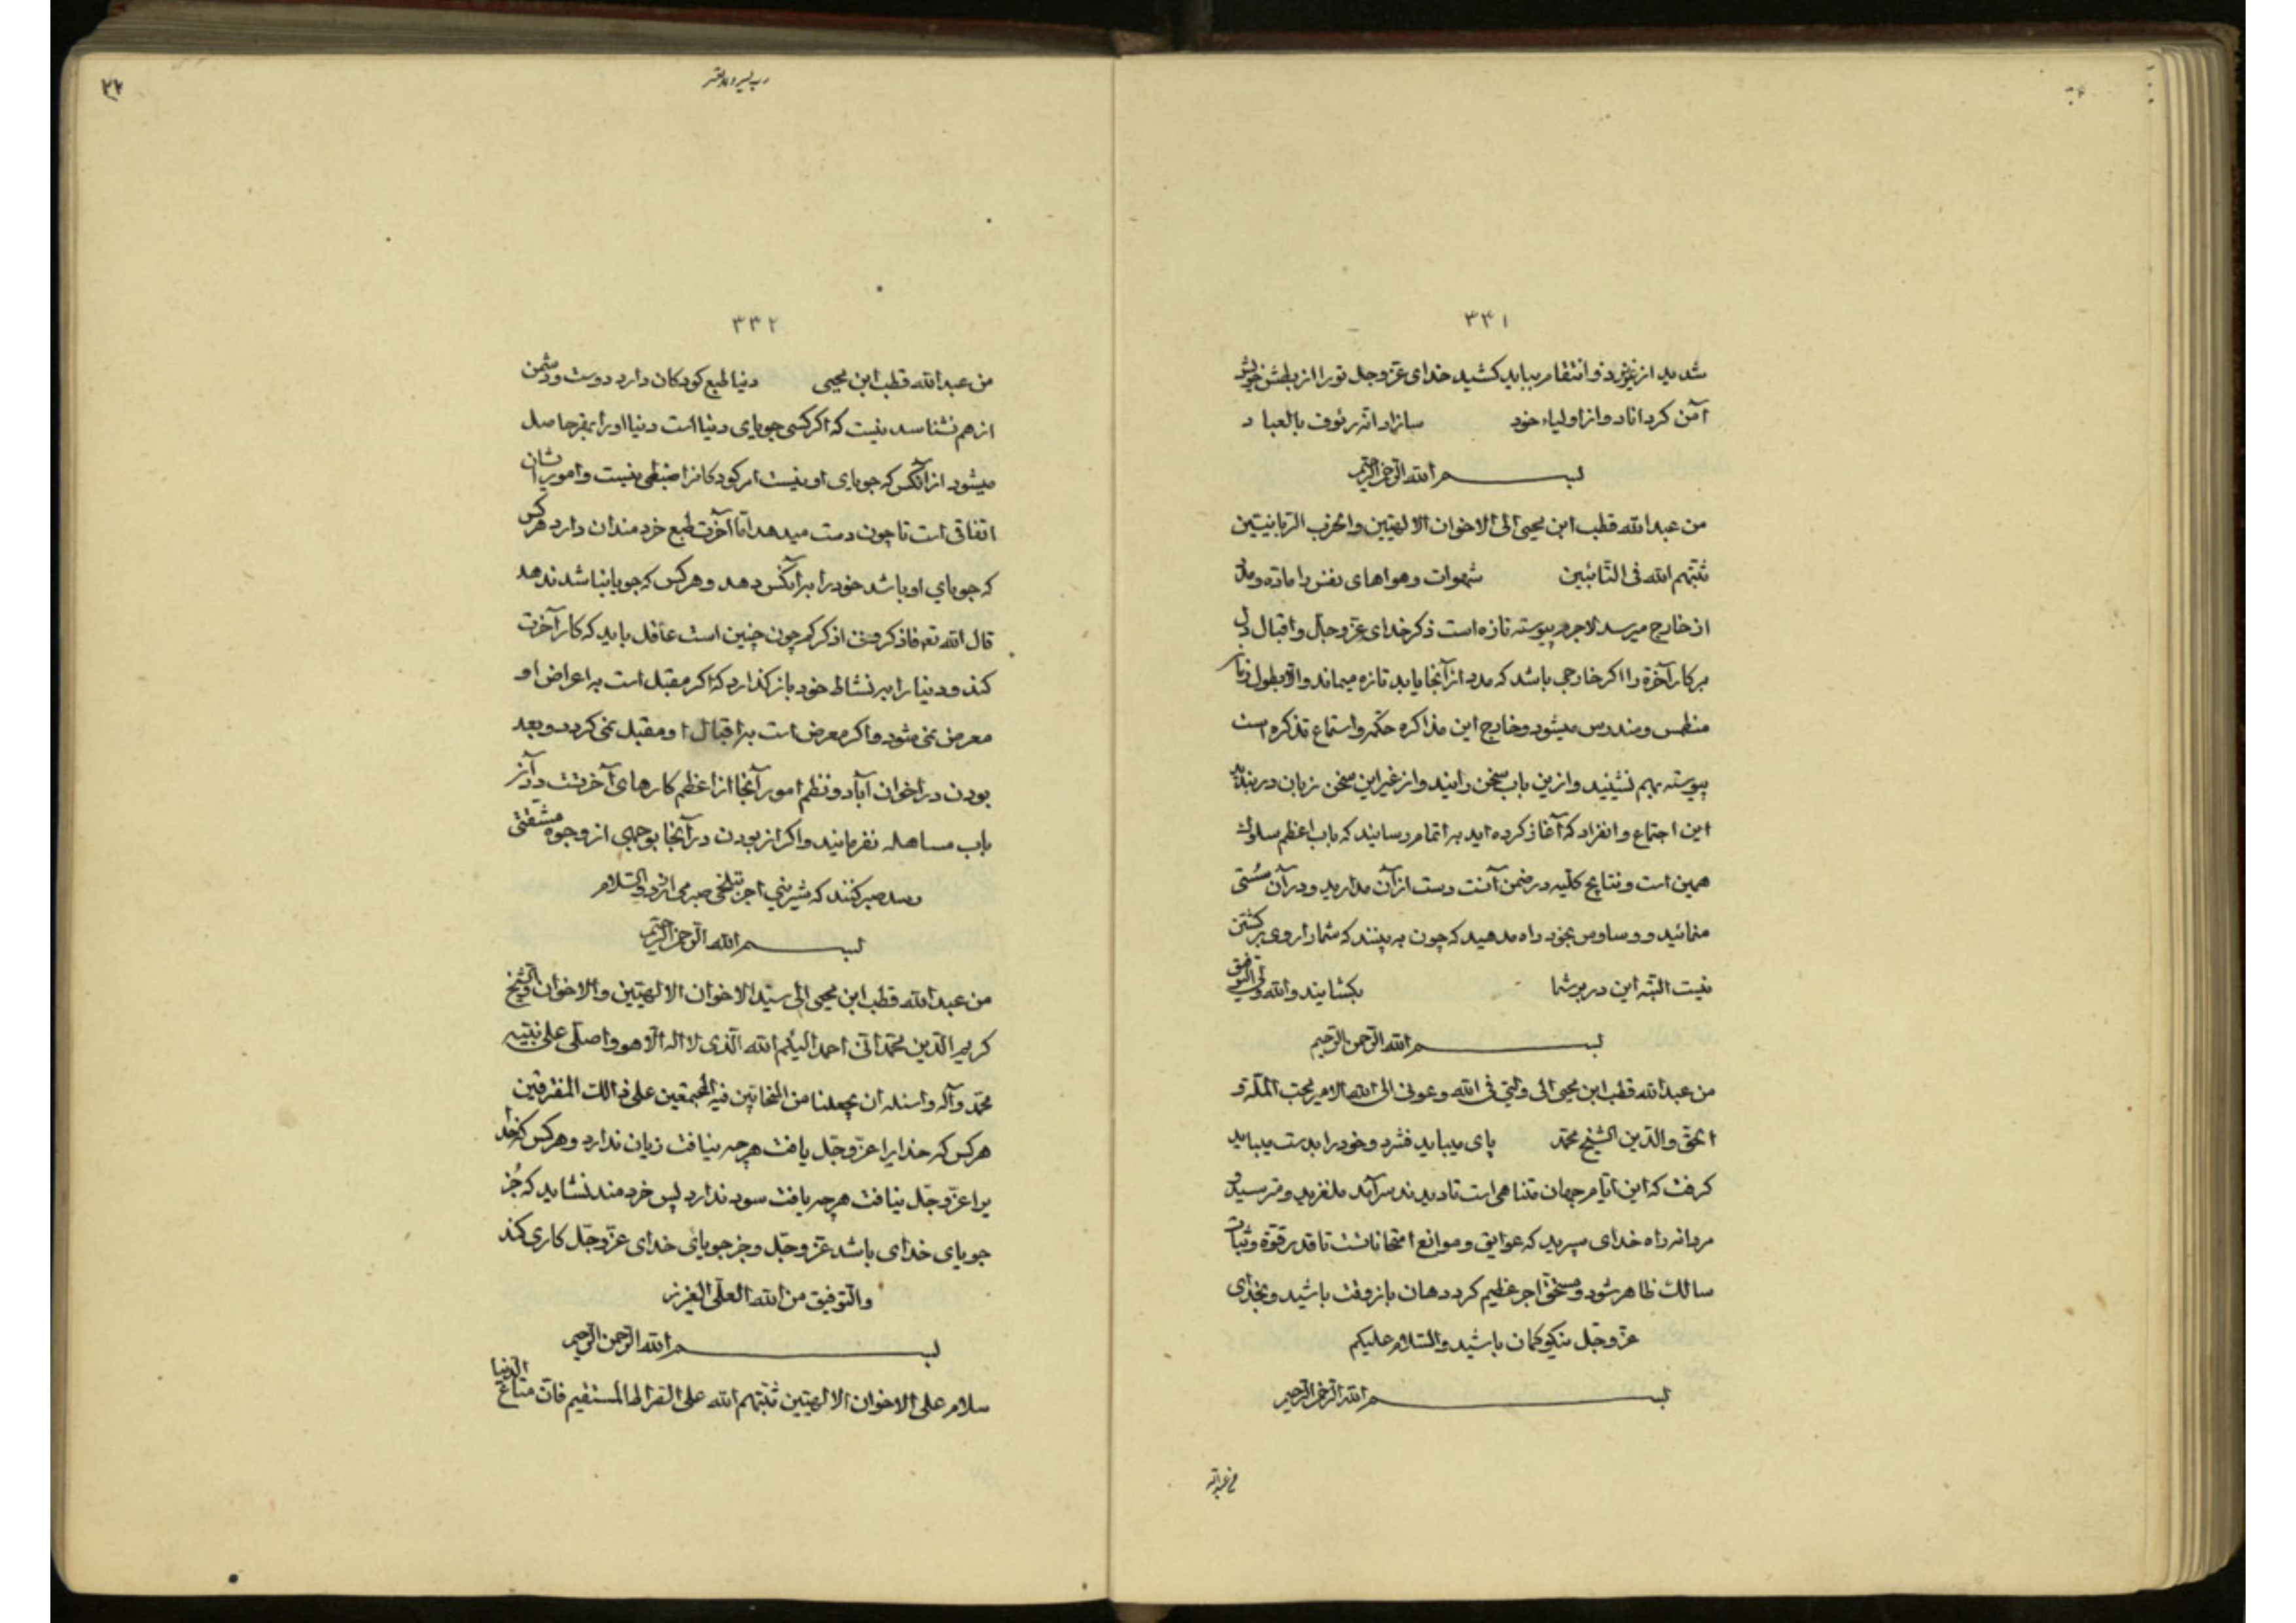 ۳۳۱
شدید از عزیز ذو انتقام بباید کشید خدای عزوجل تو را از بطش خویش
آمن کرداناد و از اولیاء خود سازاد انه رئوف بالعباد
بسم الله الرحمن الرحیم
من عبدالله قطب ابن یحیی الی الاخوان الالهیین والحزب الربانیین
ثبتهم الله فی التائبین شهوات و هواهای نفس را ماده و مدد
از خارج میرسد لاجرم پیوسته تازه است ذکر خدای عزوجل و اقبال دل
بر کار آخرة را اگر خارجی باشد که مدد از آنجا یابد تازه میماند والا بطول زمان
منطمس و مندرس میشود و خارج این مذاکره حکم و استماع تذکره است
پیوسته بهم نشینید و ازین باب سخن رانید و از غیر این سخن زبان دربندید
این اجتماع و انفراد که آغاز کرده اید به اتمام رسانید که باب اعظم سلوک
همین است و نتایج کلیه در ضمن آنست دست از آن مدارید و در آن سستی
منمائید و وساوس بخود راه مدهید که چون به بینند که شما را روی برگشتن
نیست البته این در بر شما بکشایند والله ولی التوفیق
بسم الله الرحمن الرحیم
من عبدالله قطب ابن یحیی الی ولیی فی الله وعونی الی الله الامیر محب الملة و
الحق والدین الشیخ محمد پای میباید فشرد و خود را بدست میباید
کرفت که این ایام جهان متناهی است تا دیدید سرآمد ملغزید و مترسید و
مردانه راه خدای سپرید که عوایق و موانع امتحاناتست تا قدر قوة و ثبات
سالک ظاهر شود و مستحق اجر عظیم کردد هان با زوقت باشید و بخدای
عزوجل نیکو کمان باشید والسلام علیکم
بسم الله الرحمن الرحیم
من عبدالله
۳۳۲
من عبدالله قطب ابن یحیی دنیا طبع کودکان دارد دوست و دشمن
از هم نشناسد نیست که اکر کسی جویای دنیا است دنیا او را بهتر حاصل
میشود از آنکس که جویای او نیست امر کودکانرا ضبطی نیست و امور ایشان
اتفاقی است تا چون دست میدهد اما آخرت طبع خردمندان دارد هر کس
که جویای او باشد خود را بر آنکس دهد و هر کس که جویا نباشد ندهد
قال الله تع فاذکرونی اذکرکم چون چنین است عاقل باید که کار آخرت
کند و دنیا را بر نشاط خود باز کذارد که اکر مقبل است به اعراض او
معرض نمی شود و اکر معرض است به اقبال او مقبل نمی کردد و بعد
بودن در اخوان آباد و نظم امور آنجا از اعظم کارهای آخرتست در آن
باب مساهله نفرمایند و اکر از بودن در آنجا بوجهی از وجوه مشقتی
رسد صبر کنند که شیرینی اجر بتلخی صبر می ارزد والسلام
بسم الله الرحمن الرحیم
من عبدالله قطب ابن یحیی الی سید الاخوان الالهیین والاخوان الشیخ
کریم الدین محمد انی احمد الیکم الله الذی لا اله الا هو واصلی علی نبیه
محمد و آله واسئله ان یجعلنا من المتحابین فیه المجتمعین علی ذالک المتفرقین
هر کس که خدایرا عزوجل یافت هر چه نیافت زیان ندارد و هر کس که خدا
یرا عزوجل نیافت هر چه یافت سود ندارد پس خردمند نشاید که جز
جویای خدای باشد عزوجل وجز جویائی خدای عزوجل کاری کند
والتوفیق من الله العلی العزیز
بسم الله الرحمن الرحیم
سلام علی الاخوان الالهیین ثبتهم الله علی الصراط المستقیم فان متاع الدنیا